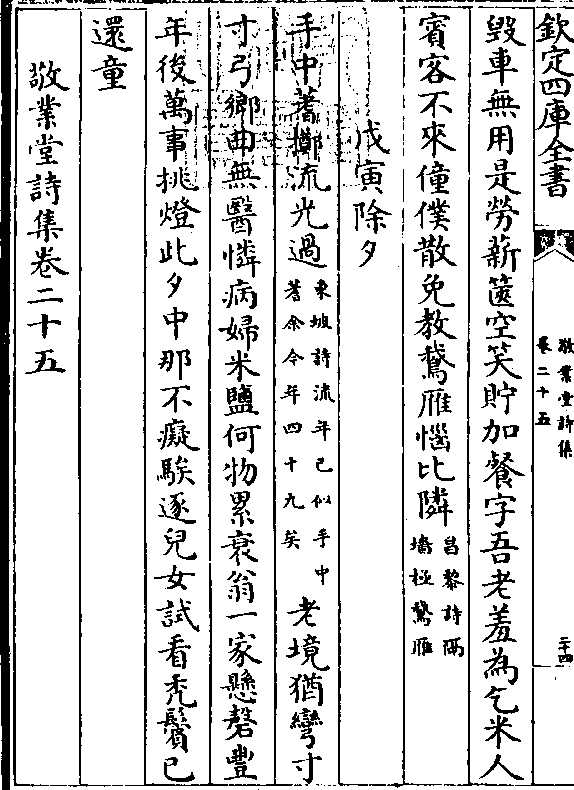 欽定四庫全書
敬業堂詩集
卷二十五
二十四
毀車無用是勞薪篋空笑貯加餐字吾老羞為乞米人
賓客不來僮僕散免教鵞雁惱比隣昌黎詩隔
墻極鵞雁
戊寅除夕
手中蓍擲流光過東坡詩流年已似手中
蓍余今年四十九矣老境猶彎寸
寸弓鄉曲無醫憐病婦米鹽何物累衰翁一家懸磬豐
年後萬事挑燈此夕中那不癡騃逐兒女試看禿鬢已
還童
敬業堂詩集卷二十五